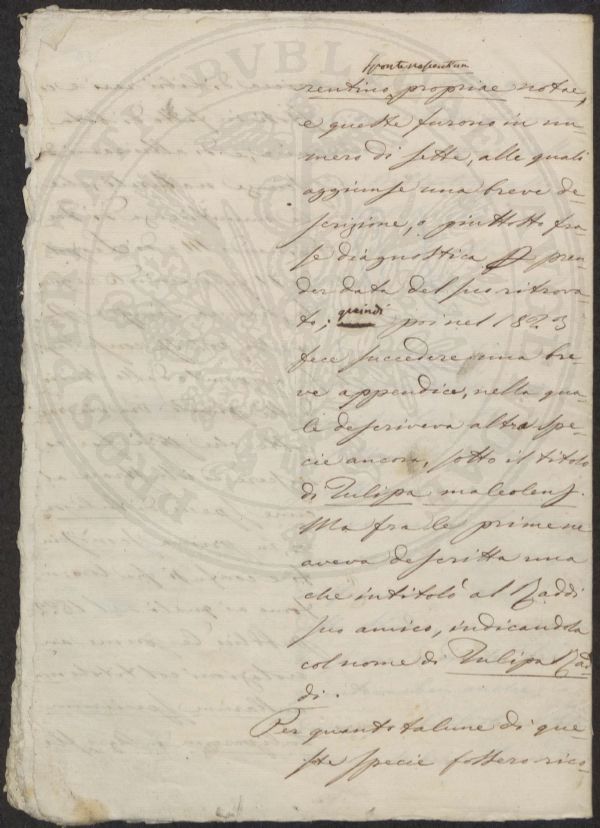 sponte nascentium
rentino propriae notae,
e queste furono in nu-
mero di sette, alle quali
aggiunse una breve de-
scrizione, o piuttosto fra-
se diagnostica p pren-
der data del suo ritrova-
to; quindi poi nel 1823
fece succedere una bre-
ve appendice, nella qua-
le descriveva altra spe-
cie ancora, sotto il titolo
di Tulipa maleolens.
Ma fra le prime ne
aveva descritta una
che intitolò al Raddi
suo amico, indicandola
col nome di Tulipa Rad-
di.
Per quanto talune di que-
ste specie fossero rico-